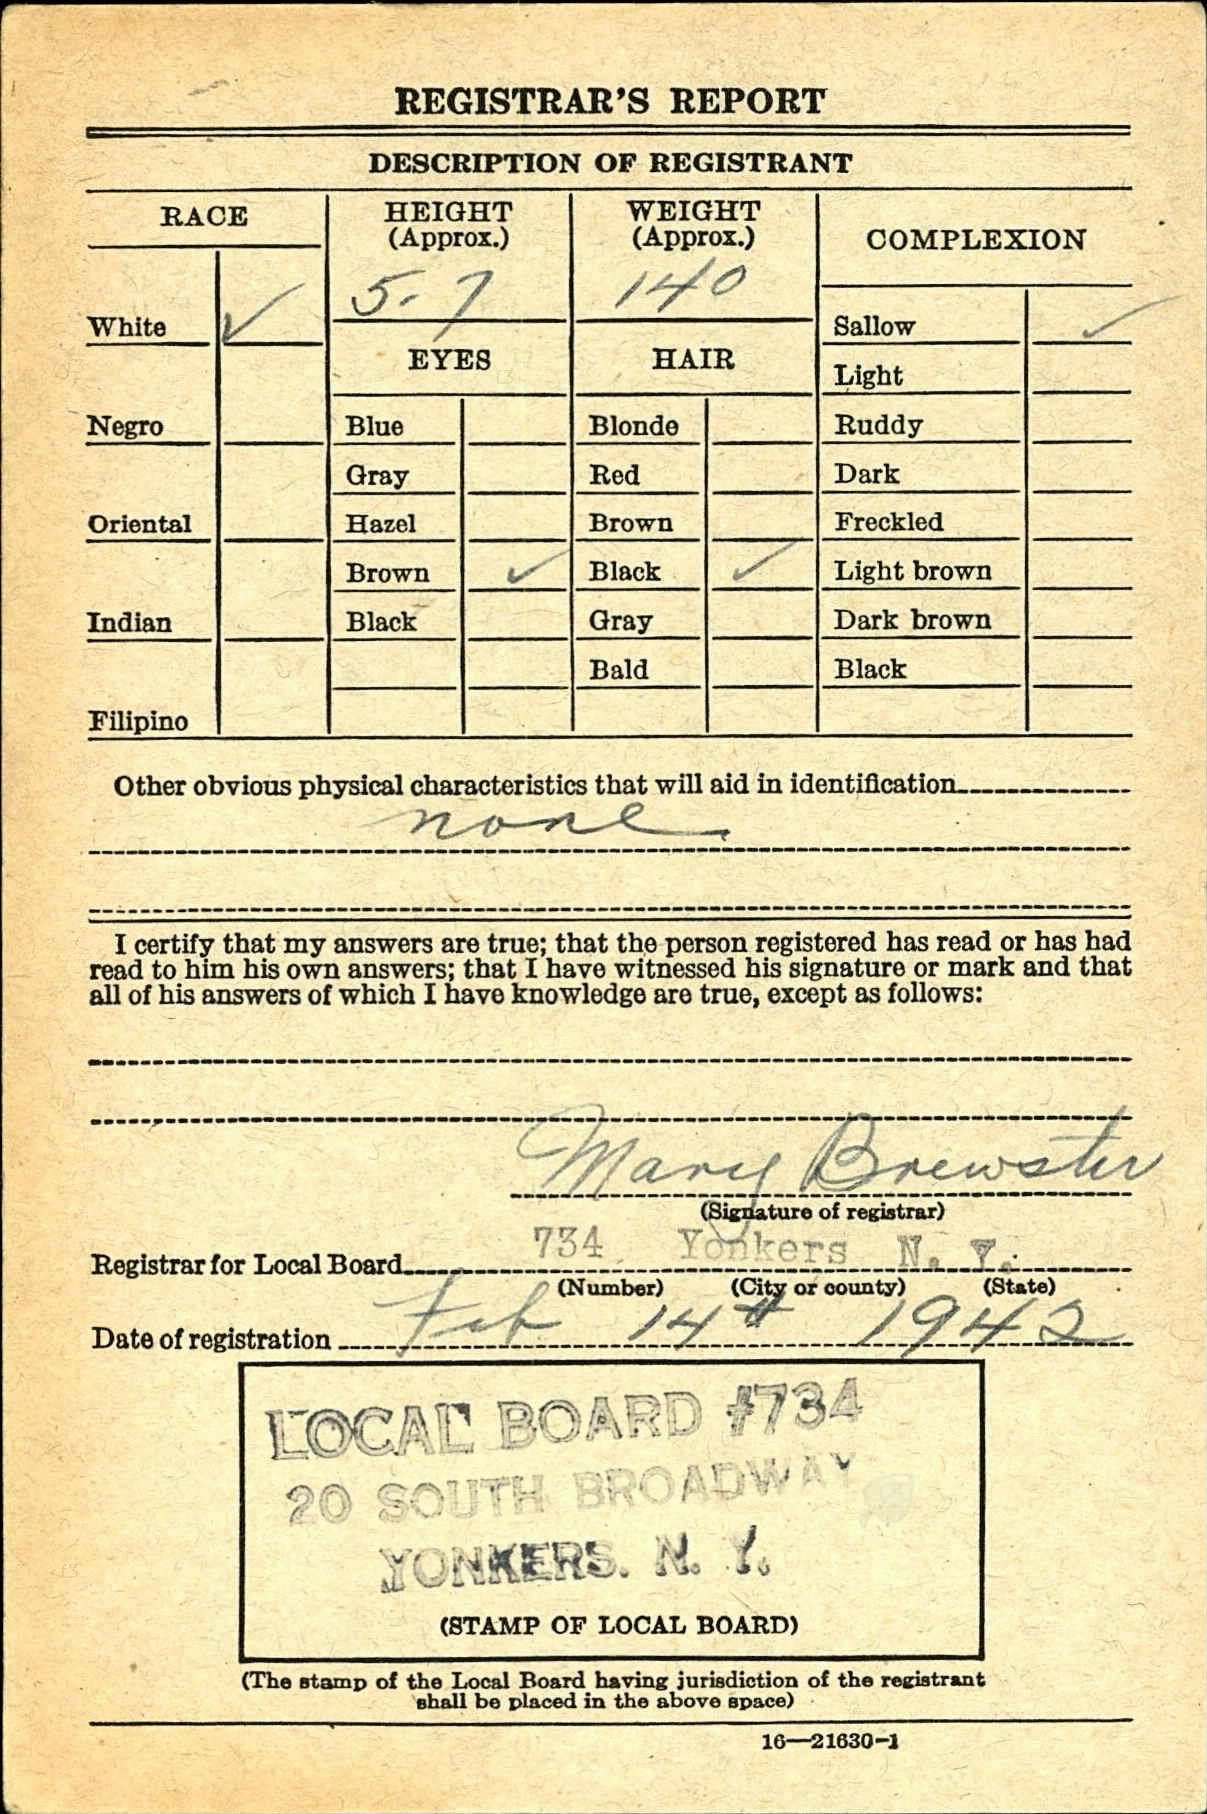 REGISTRAR'S REPORT
DESCRIPTION OF REGISTRANT
RACE
HEIGHT
(Approx.)
WEIGHT
(Approx.)
COMPLEXION
5-7
140
White ✓
Sallow ✓
EYES
HAIR
Light
Negro
Blue
Blonde
Ruddy
Gray
Red
Dark
Oriental
Hazel
Brown
Freckled
Brown ✓
Black ✓
Light brown
Indian
Black
Gray
Dark brown
Bald
Black
Filipino
Other obvious physical characteristics that will aid in identification
none
I certify that my answers are true; that the person registered has read or has had
read to him his own answers; that I have witnessed his signature or mark and that
all of his answers of which I have knowledge are true, except as follows:
Mary Brewster
(Signature of registrar)
Registrar for Local Board 734 Yonkers N. Y.
(Number) (City or county) (State)
Date of registration Feb 14th 1942
LOCAL BOARD #734
20 SOUTH BROADWAY
YONKERS. N. Y.
(STAMP OF LOCAL BOARD)
(The stamp of the Local Board having jurisdiction of the registrant
shall be placed in the above space)
16—21630-1